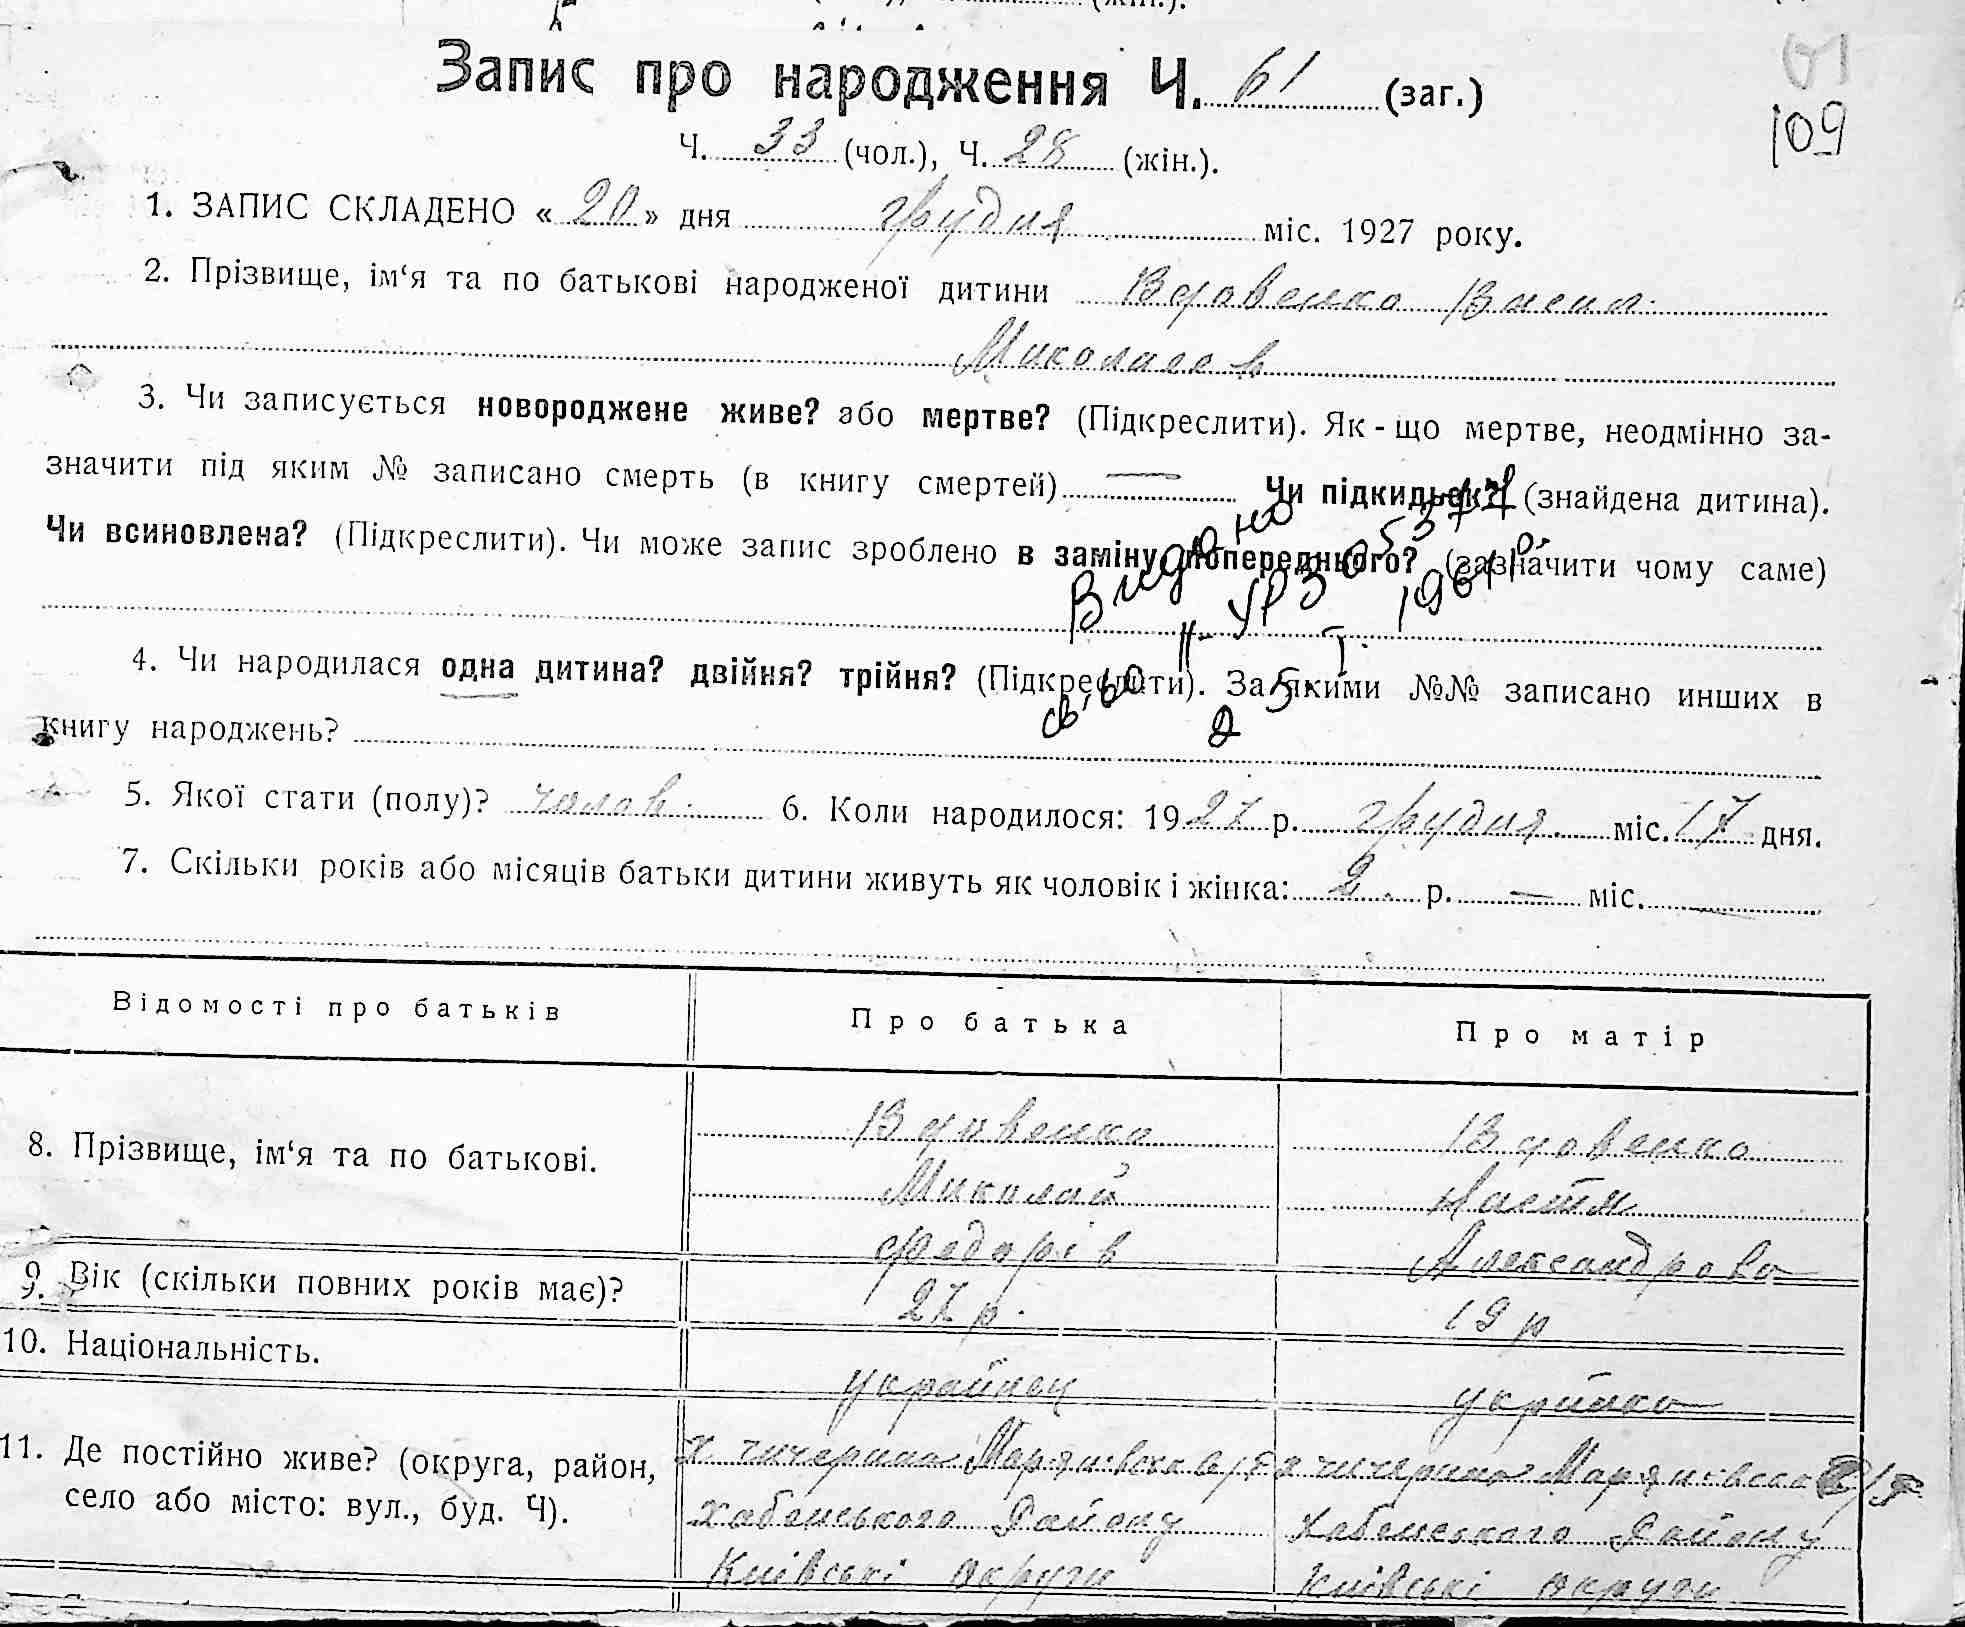 Запис про народження Ч. 61 (заг.)
109
Ч. 33 (чол.), Ч. 28 (жін.).
1. ЗАПИС СКЛАДЕНО « 20 » дня грудня міс. 1927 року.
2. Прізвище, ім‘я та по батькові народженої дитини Вдовенко Васил
Миколаев
3. Чи записується новороджене живе? або мертве? (Підкреслити). Як - що мертве, неодмінно за-
значити під яким № записано смерть (в книгу смертей) — Чи підкидьок? (знайдена дитина).
Чи всиновлена? (Підкреслити). Чи може запис зроблено в заміну попереднього? (зазначити чому саме)
Видано
II-УРЗ
св-во
4. Чи народилася одна дитина? двійня? трійня? (Підкреслити). За якими №№ записано инших в
книгу народжень?
5. Якої стати (полу)? чолов. 6. Коли народилося: 1927 р. грудня міс. 17 дня.
7. Скільки років або місяців батьки дитини живуть як чоловік і жінка: 2 р. — міс.
Відомості про батьків Про батька Про матір
8. Прізвище, ім‘я та по батькові. Вдовенко Вдовенко
Миколай Настя
Федорів Александрова
9. Вік (скільки повних років має)? 27 р. 19 р
10. Національність. українец укрїнка
11. Де постійно живе? (округа, район, село або місто: вул., буд. Ч). х чичерина Марянівська с/р х чичерина Марянівська с/р
Хабенського Району Хабенського Району
Київські округи Київські округи